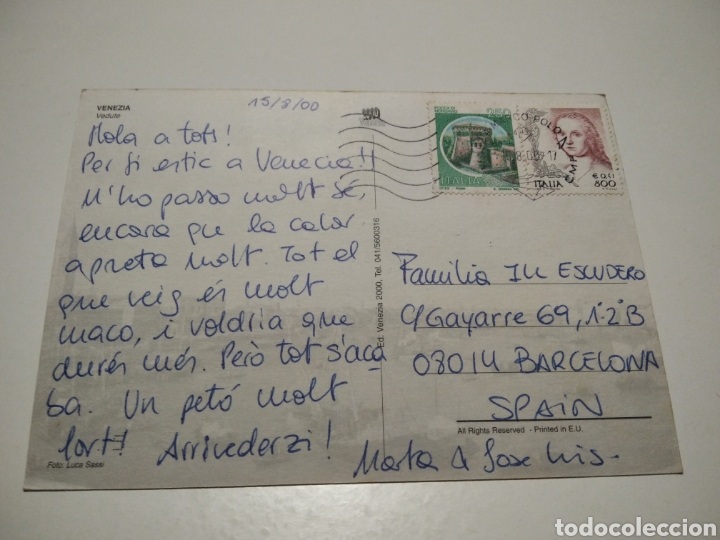 VENEZIA
Vedute
15/8/00
Hola a tots!
Per fi estic a Venecia!!
M'ho passo molt bé,
encara que la calor
apreta molt. Tot el
que veig és molt
maco, i voldria que
durés més. Però tot s'aca
ba. Un petó molt
fort! Arrivederzi!
Foto: Luca Sassi
Ed. Venezia 2000, Tel. 041/5600316
250
ITALIA
MARCO POLO
CMP
ITALIA
€ 0,41
800
Familia Ill Escudero
C/Gayarre 69, 1º 2ª B
08014 BARCELONA
SPAIN
All Rights Reserved - Printed in E.U.
Marta & Jose Luis
todocoleccion